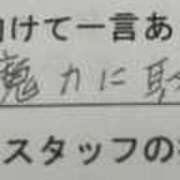 向けて一言あ
魔力に取
スタッフの